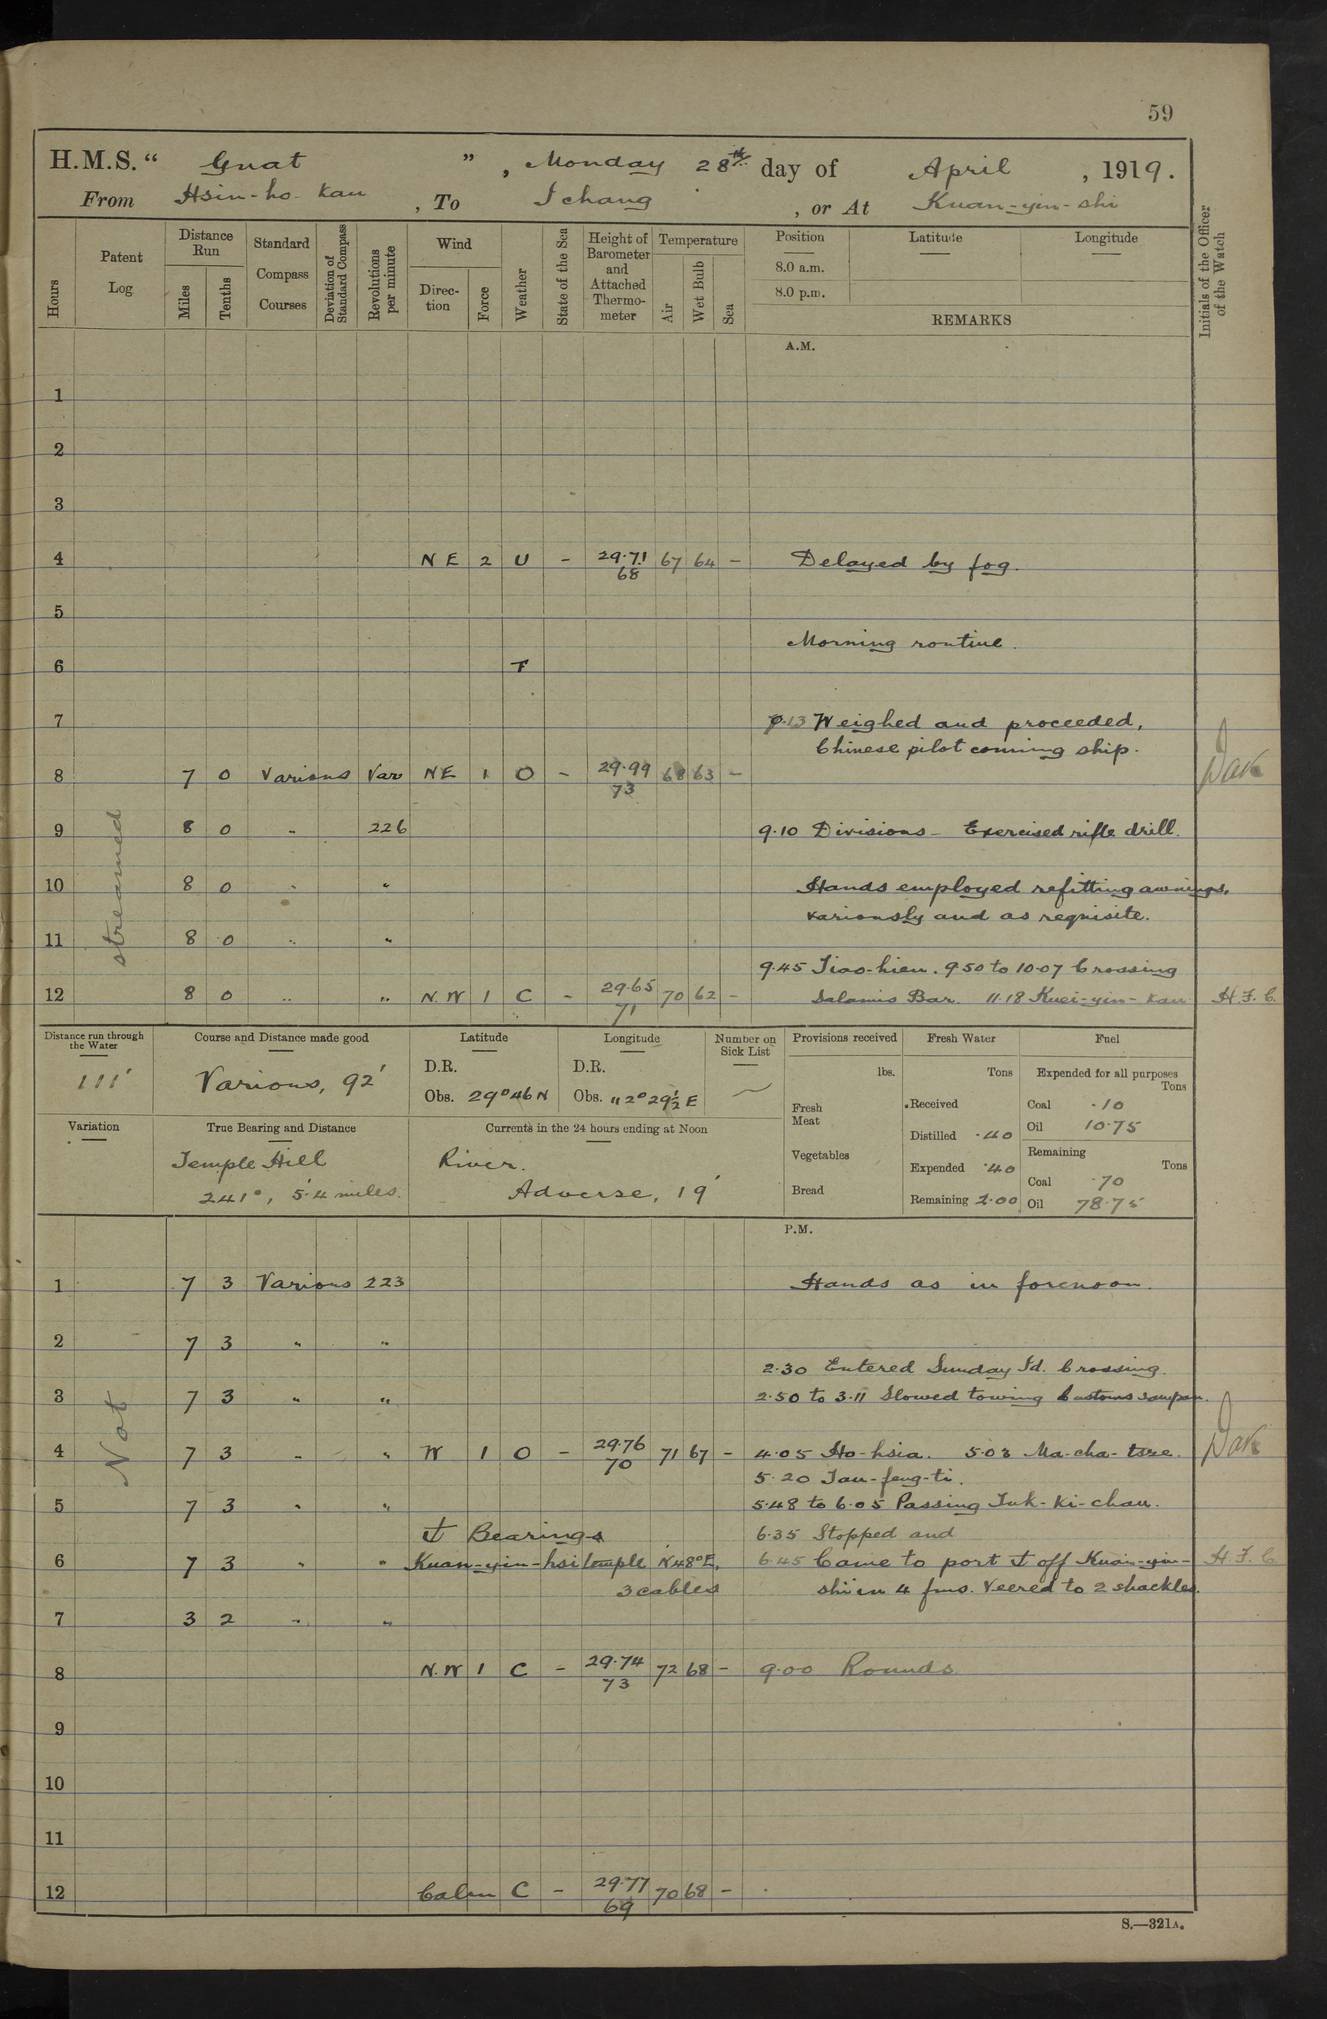 59
H.M.S. " Gnat ", Monday 28th day of April, 1919.
From Hsin-ho-kau, To Ichang, or At Kuan-yin-shi
Hours
Patent Log
Distance Run
Miles
Tenths
Standard Compass Courses
Deviation of Standard Compass
Revolutions per minute
Wind
Direction
Force
Weather
State of the Sea
Height of Barometer and Attached Thermometer
Temperature
Air
Wet Bulb
Sea
Position
8.0 a.m.
8.0 p.m.
Latitude
Longitude
REMARKS
Initials of the Officer of the Watch
A.M.
1
2
3
4 NE 2 U - 29.71 68 67 64 - Delayed by fog.
5
Morning routine.
6 F
7 7.13 Weighed and proceeded,
Chinese pilot conning ship.
8 7 0 Various Var NE 1 O - 29.99 73 68 63 -
9 8 0 " 226 9.10 Divisions - Exercised rifle drill.
10 8 0 " " Hands employed refitting awnings,
variously and as requisite.
11 8 0 " "
9.45 Tiao-hien. 9.50 to 10.07 Crossing
12 8 0 " " N.W 1 C - 29.65 71 70 62 - Salamis Bar. 11.18 Kuei-yin-kau H.F.C.
streamed
Distance run through the Water
111'
Course and Distance made good
Various, 92'
Latitude
D.R.
Obs. 29°46 N
Longitude
D.R.
Obs. 112°29½ E
Number on Sick List
Provisions received
lbs.
Fresh Meat
Vegetables
Bread
Fresh Water
Tons
Received
Distilled .40
Expended .40
Remaining 2.00
Fuel
Expended for all purposes
Tons
Coal .10
Oil 10.75
Remaining
Tons
Coal .70
Oil 78.75
Variation
True Bearing and Distance
Temple Hill
241°, 5.4 miles.
Currents in the 24 hours ending at Noon
River.
Adverse, 19'
P.M.
1 7 3 Various 223 Hands as in forenoon.
2 7 3 " "
2.30 Entered Sunday Id. Crossing.
3 7 3 " " 2.50 to 3.11 Slowed towing Customs sampan.
4 7 3 " " W 1 O - 29.76 70 71 67 - 4.05 Ho-hsia. 5.03 Ma-cha-tsze.
5.20 Tau-feng-ti.
5 7 3 " " 5.48 to 6.05 Passing Tuk-ki-chau.
⚓ Bearings 6.35 Stopped and
6 7 3 " " Kuan-yin-hsi temple N48°E, 6.45 Came to port ⚓ off Kuan-yin- H.F.C.
3 cables shi in 4 fms. Veered to 2 shackles.
7 3 2 " "
8 N.W 1 C - 29.74 73 72 68 - 9.00 Rounds
9
10
11
12 Calm C - 29.77 69 70 68 -
Not
S.—321A.